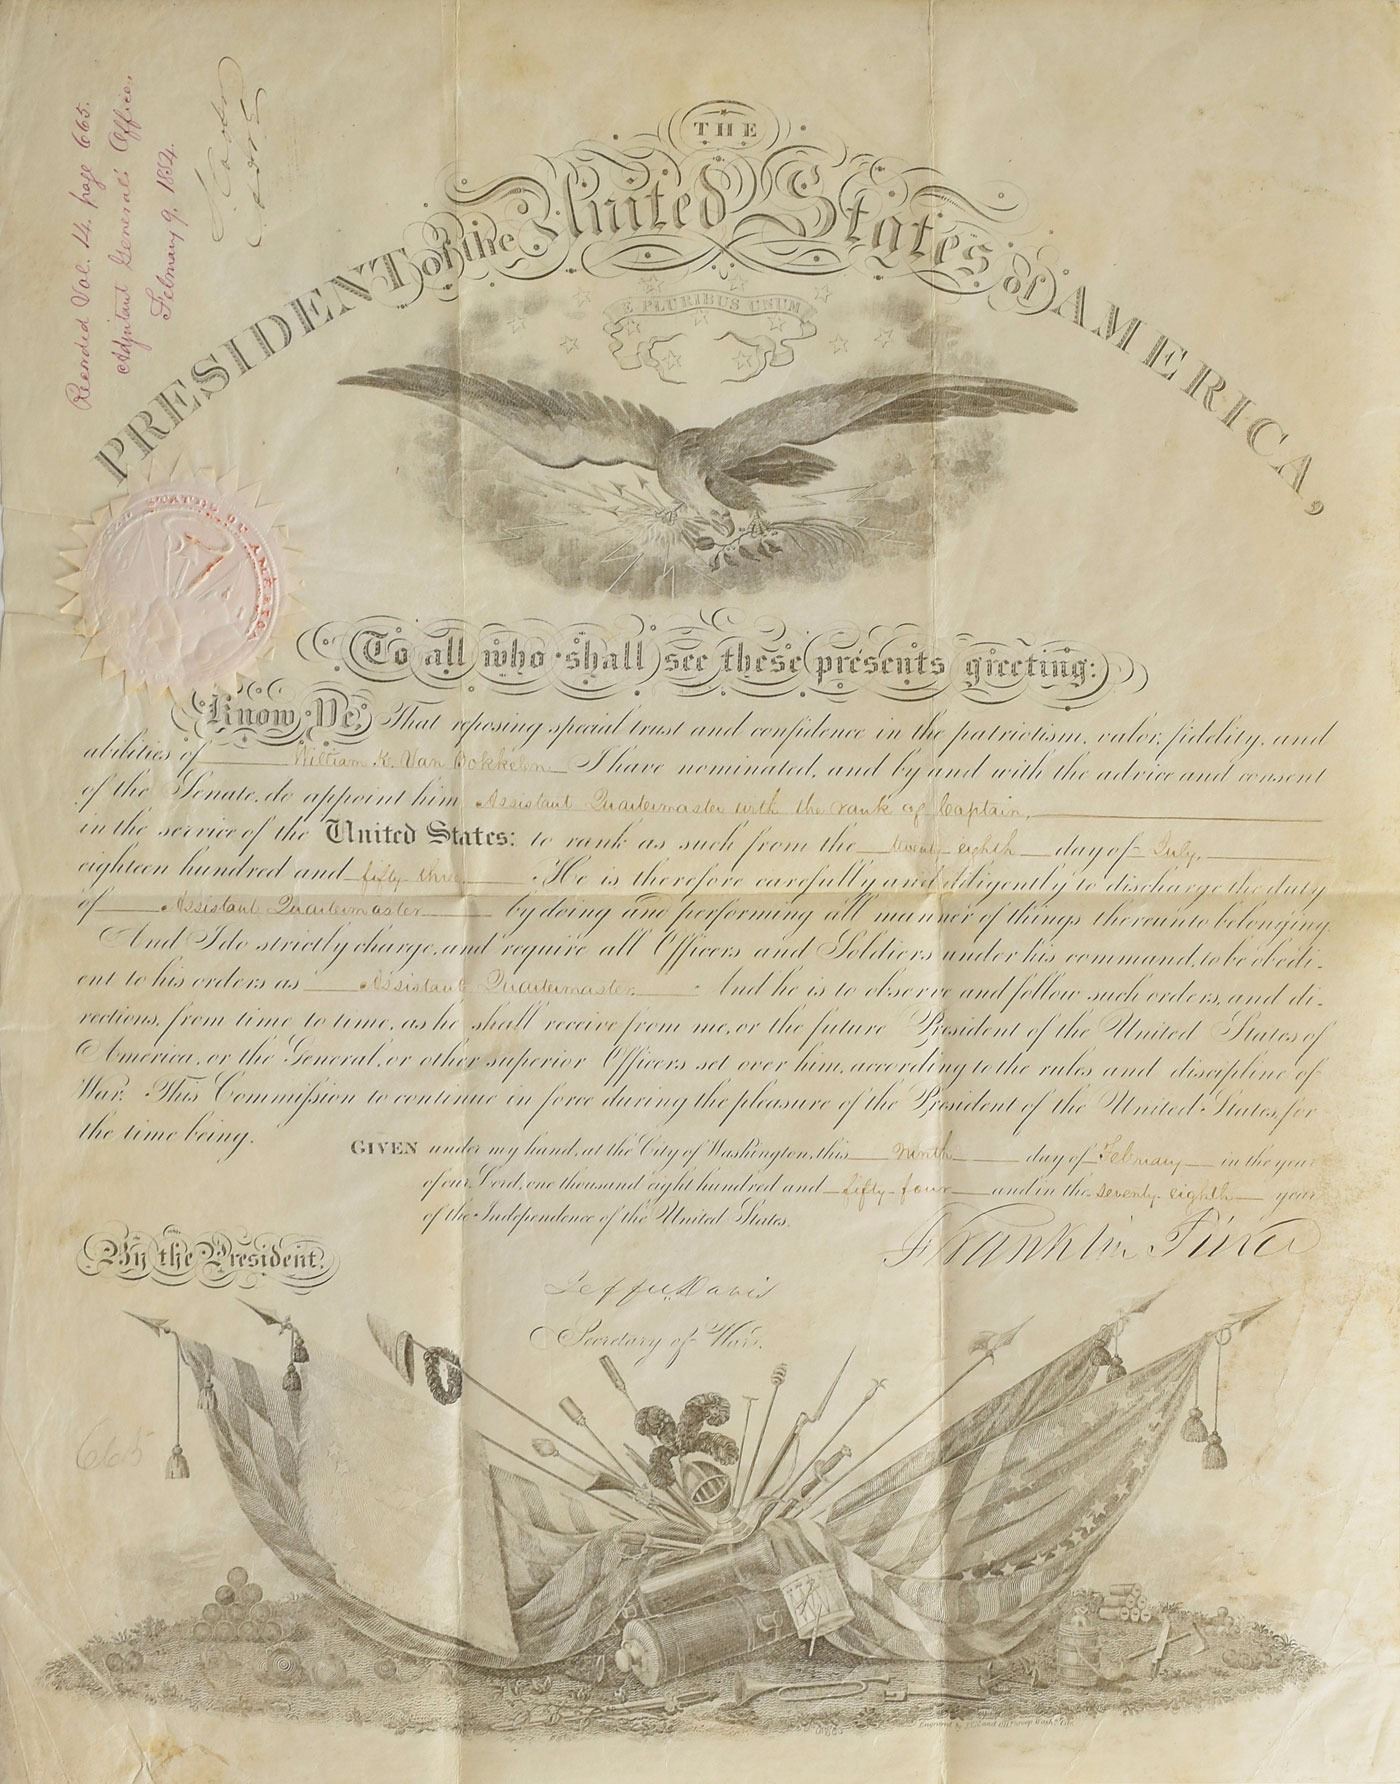 Recorded Vol. 14. page 665.
Adjutant General's Office,
February 9. 1854.
THE
PRESIDENT of the United States of AMERICA,
E PLURIBUS UNUM
STATES OF AMERICA
To all who shall see these presents greeting:
Know Ye, That reposing special trust and confidence in the patriotism, valor, fidelity, and
abilities of William K. Van Bokkelen I have nominated, and by and with the advice and consent
of the Senate, do appoint him Assistant Quartermaster with the rank of Captain,
in the service of the United States: to rank as such from the twenty eighth day of July,
eighteen hundred and fifty three. He is therefore carefully and diligently to discharge the duty
of Assistant Quartermaster by doing and performing all manner of things thereunto belonging.
And I do strictly charge, and require all Officers and Soldiers under his command, to be obedi-
ent to his orders as Assistant Quartermaster. And he is to observe and follow such orders, and di-
rections, from time to time, as he shall receive from me, or the future President of the United States of
America, or the General, or other superior Officers set over him, according to the rules and discipline of
War. This Commission to continue in force during the pleasure of the President of the United States, for
the time being.
GIVEN under my hand, at the City of Washington, this ninth day of February in the year
of our Lord, one thousand eight hundred and fifty-four and in the seventy-eighth year
of the Independence of the United States.
By the President.
Franklin Pierce
Jeffn. Davis
Secretary of War.
665